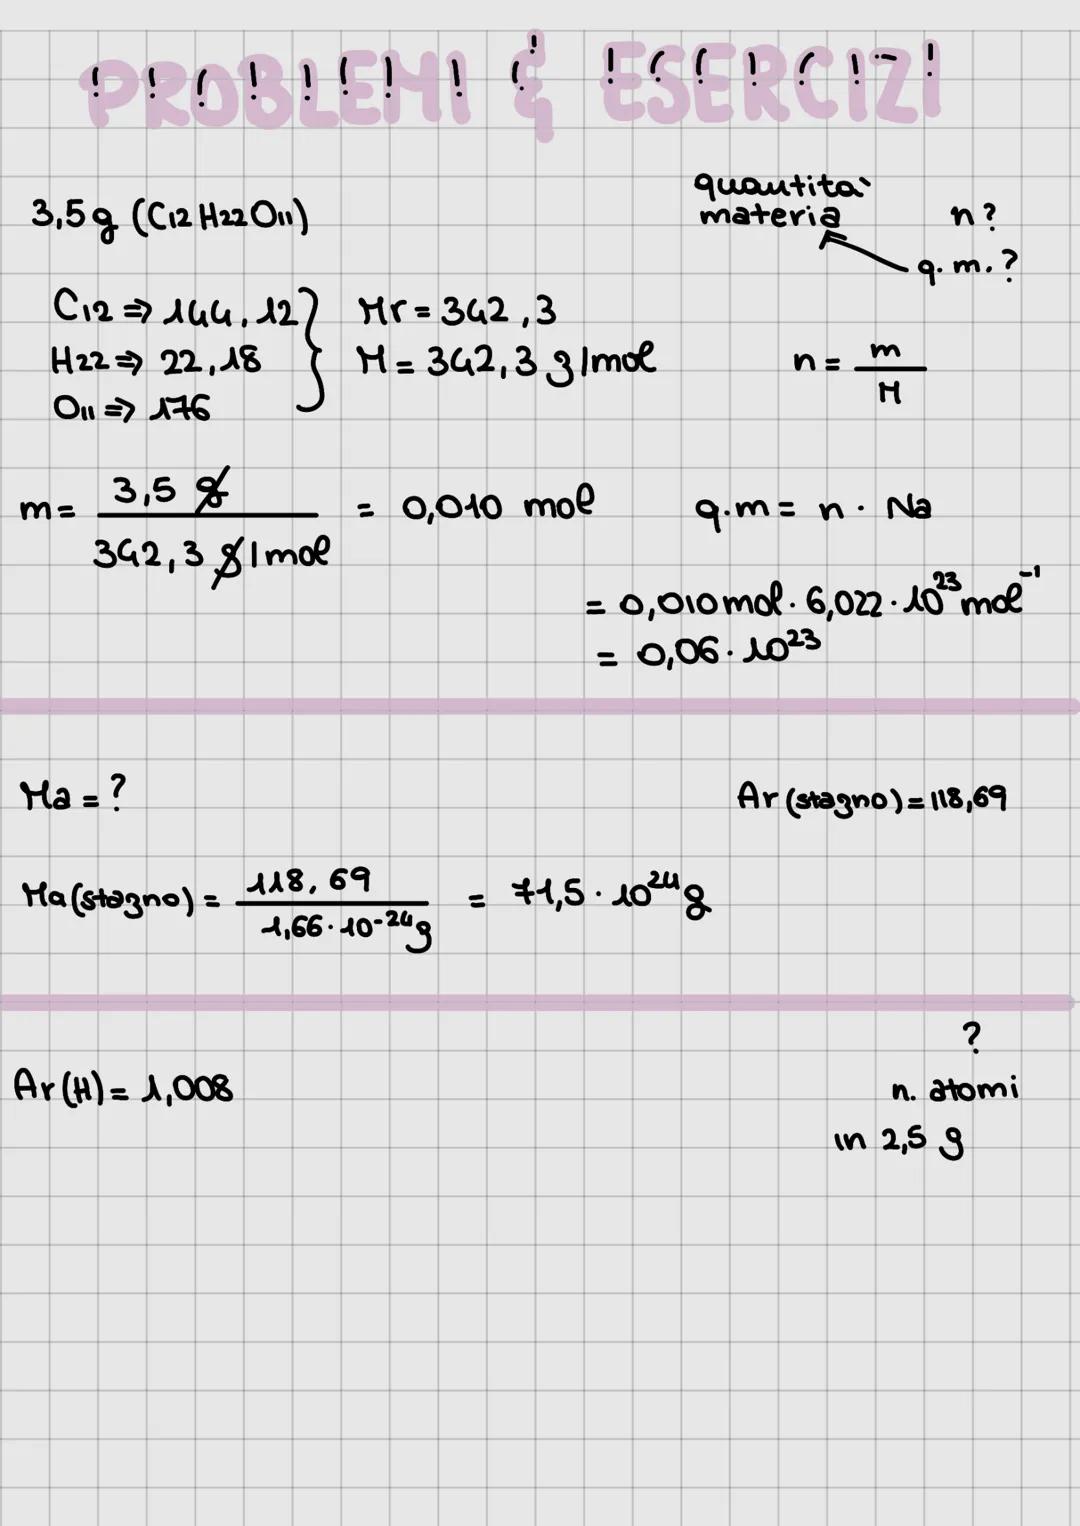 PROBLEMI & ESERCIZI
3,5 g (C12 H22 O11)
quantità
materia n?
q. m. ?
C12 ⇒ 144,12
H22 ⇒ 22,18
O11 ⇒ 176
Mr = 342,3
M = 342,3 g/mol
n = m/M
m = 3,5 g / 342,3 g/mol = 0,010 mol
q.m = n · Na
= 0,010 mol · 6,022 · 10²³ mol⁻¹
= 0,06 · 10²³
Ma = ?
Ar (stagno) = 118,69
Ma (stagno) = 118,69 / 1,66 · 10⁻²⁴ g = 71,5 · 10²⁴ g
Ar (H) = 1,008
?
n. atomi
in 2,5 g